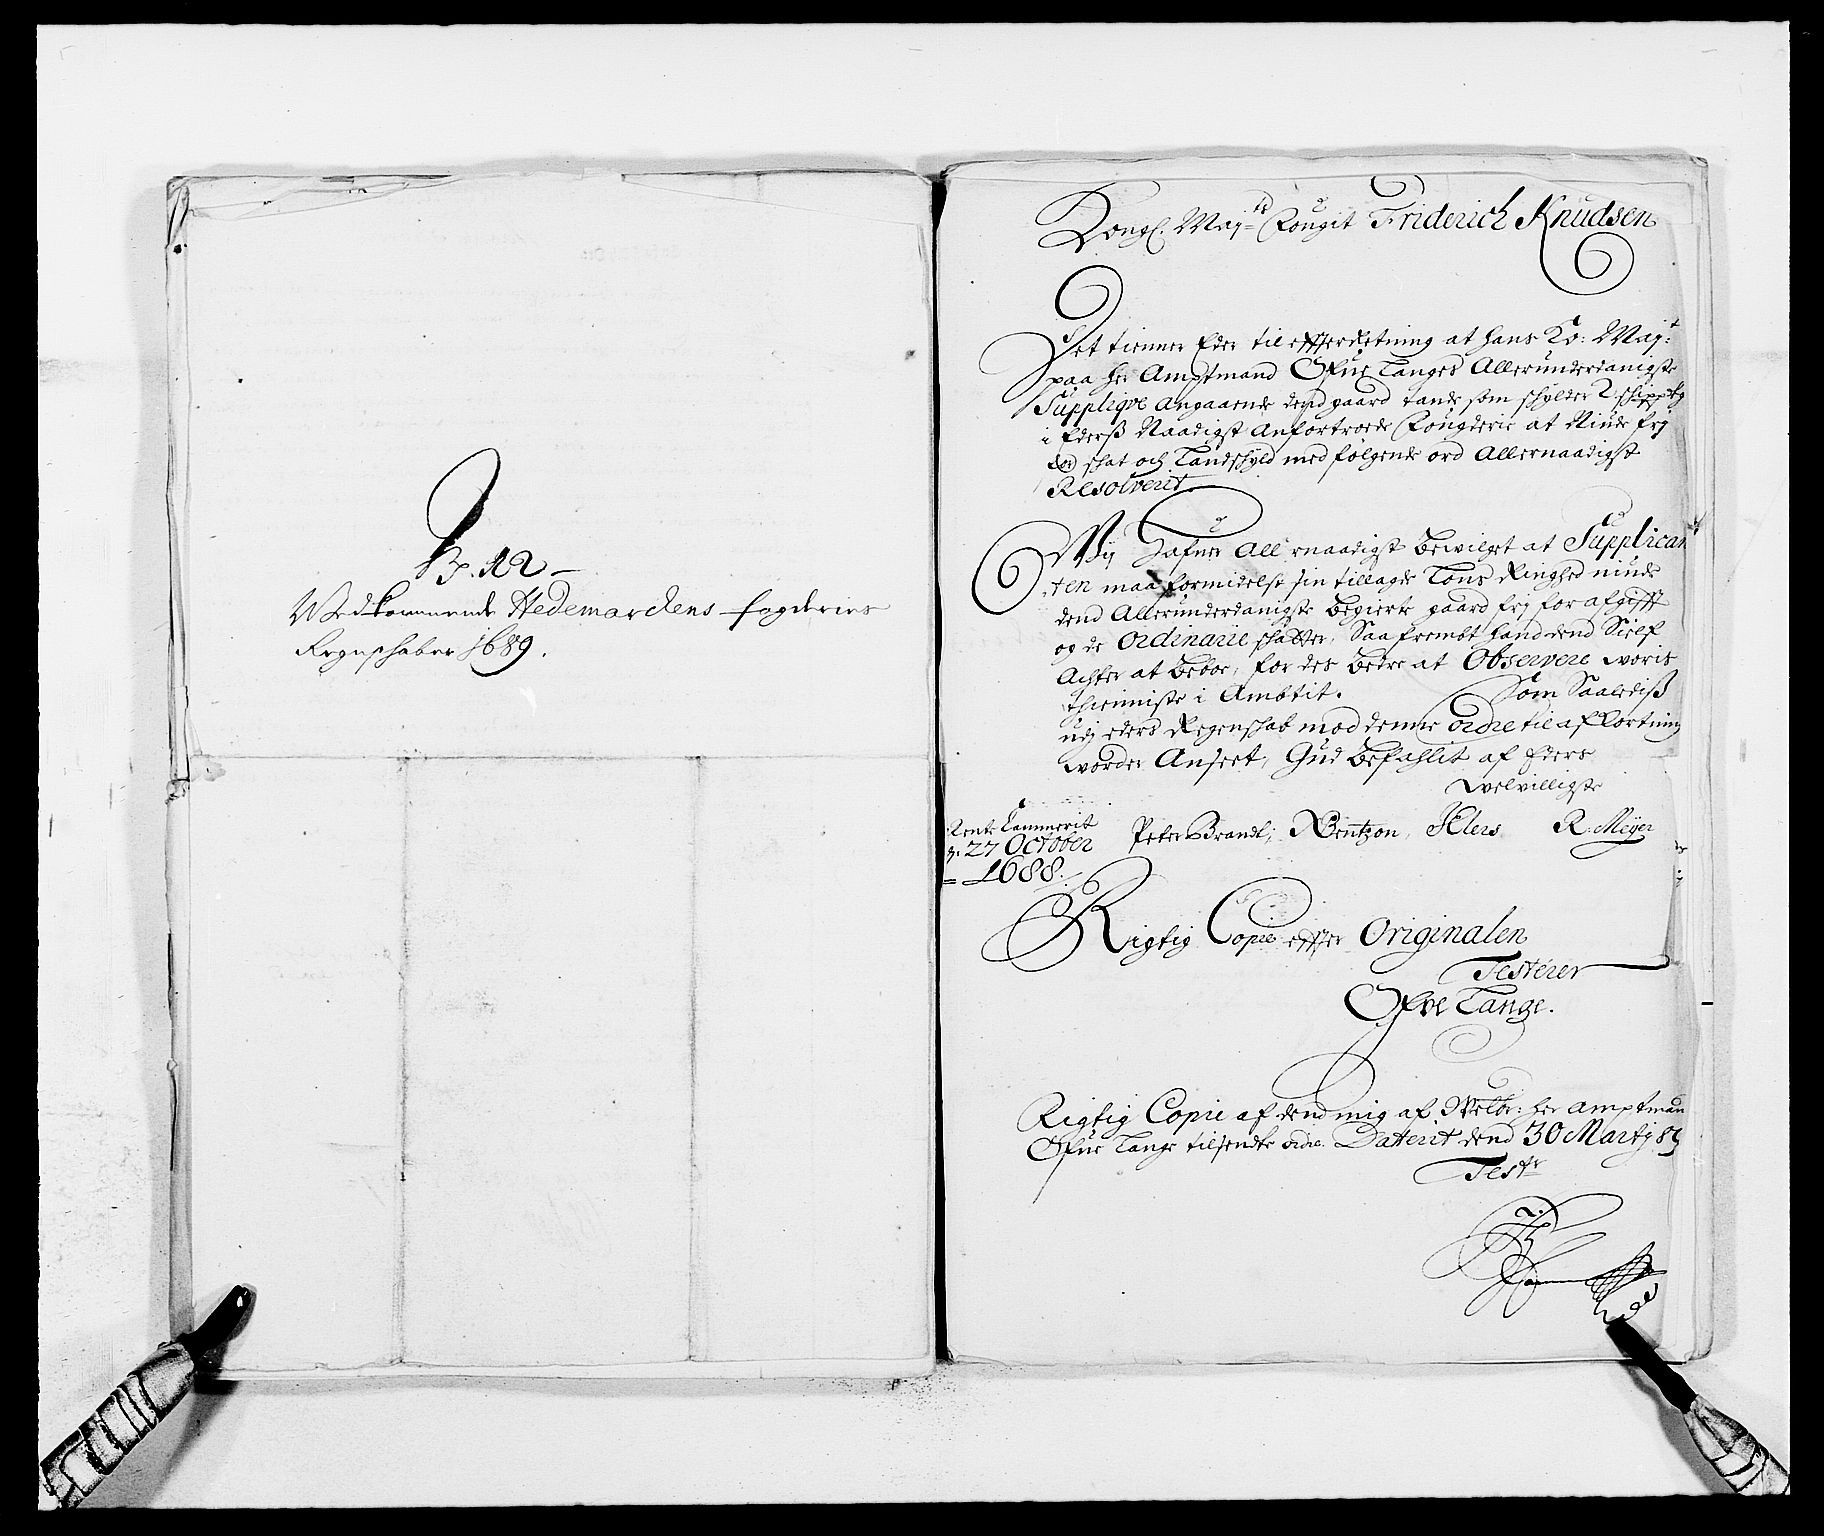 No. 12 –
Vedkommende Hedemarckens fogderies
Regnschaber 1689.
Kongl. Maj:tz Fougit Friderich Knudsen
Det tienner Eder til effterrætning at hans Ko: Maj:t
paa her Amptmand Ofue Langes Allerunderdanigste
Supplique angaaende dend gaard som schylder 2 schippd
i Ederß Naadigst Anfortroede Fougderie at Niude frj
for schat och Landschyld med følgende ord Allernaadigst
Resolverit.
Wij hafuer Allernaadigst bewilget at Supplican
ten maa formidelst sin tillagde Løns Ringhed niude
dend Allerunderdanigste begierte gaard frj for afgifft
og de Ordinarie schatter, Saafrembt hand dend Sielf
Achter at beboe, for des bedre at Observere woris
thienniste i Ambtit. Som Saalediß
udj eders Regenschab med denne ordre til afkortning
worder Anseet, Gud befahlit af Eders
welvilligste
Rente Cammerit
d. 27 October
1688.
Peter Brandt, Bentzon, R. Meyer
Rigtig Copie effter Originalen
Testerer
Ofve Lange.
Rigtig Copie af dend mig af Welb: her Amptman
Ofue Lange tilsendte ordre. Datterit dend 30 Martij 89
Test: